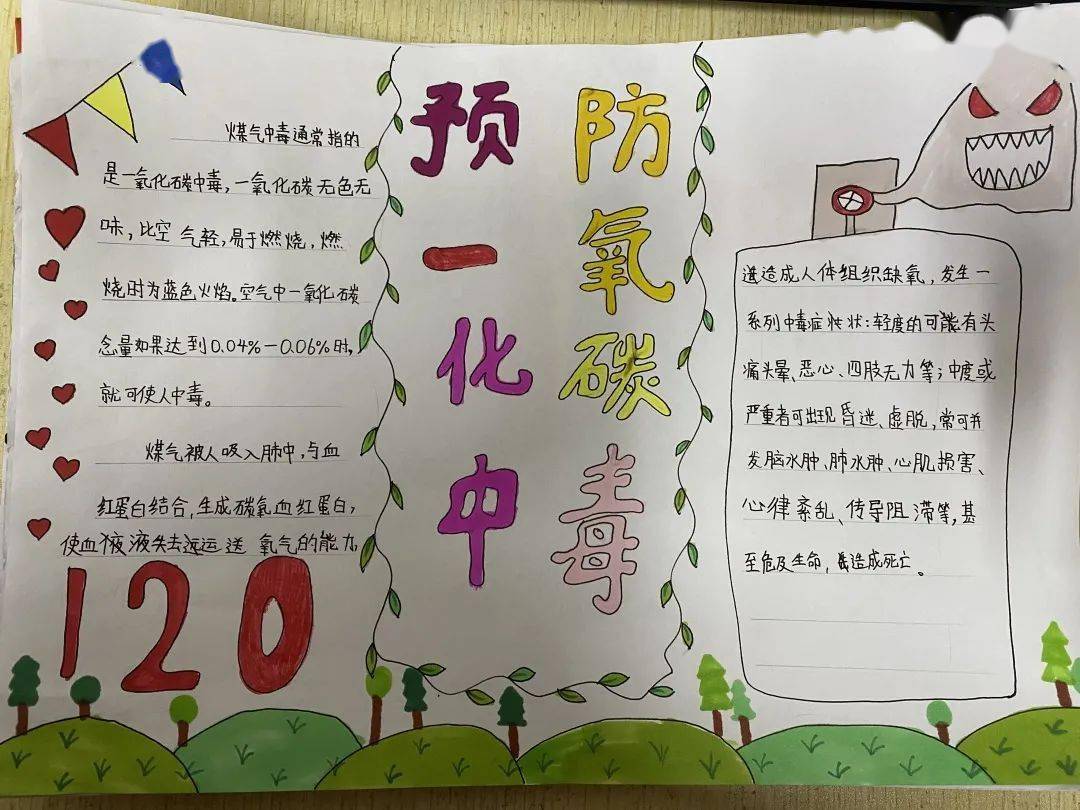 煤气中毒通常指的
是一氧化碳中毒,一氧化碳无色无
味,比空气轻,易于燃烧,燃
烧时为蓝色火焰。空气中一氧化碳
含量如果达到0.04%—0.06%时,
就可使人中毒。
煤气被人吸入肺中,与血
红蛋白结合,生成碳氧血红蛋白,
使血液液失去运送氧气的能力,
120
预防
一氧
化碳
中毒
造成人体组织缺氧,发生一
系列中毒症状:轻度的可能有头
痛头晕、恶心、四肢无力等;中度或
严重者可出现昏迷、虚脱,常可并
发脑水肿、肺水肿、心肌损害、
心律紊乱、传导阻滞等,甚
至危及生命,造成死亡。